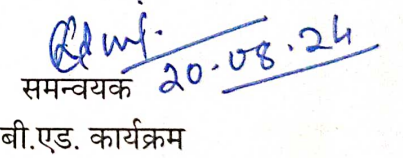 20.08.24
समन्वयक
बी.एड. कार्यक्रम